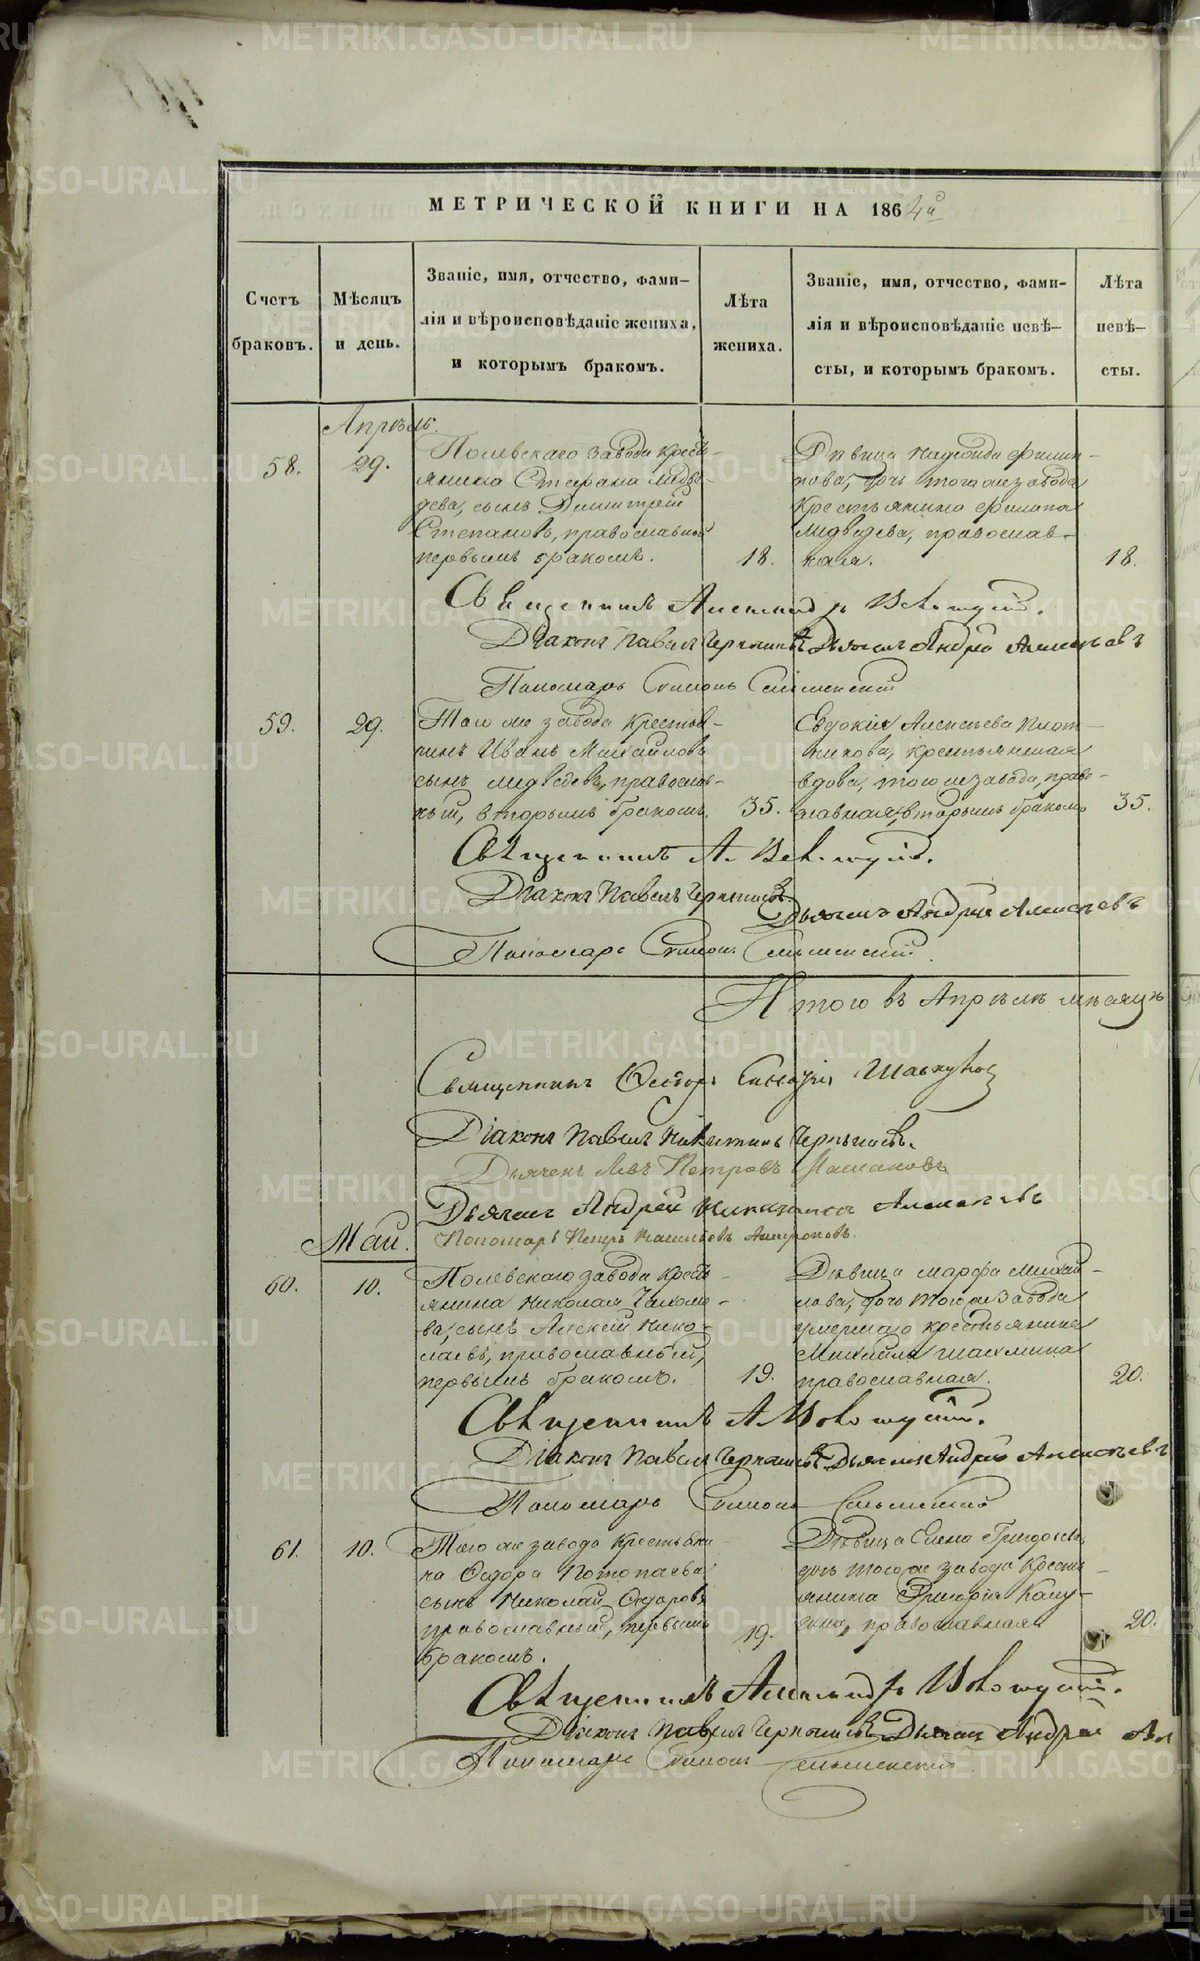 МЕТРИЧЕСКОЙ КНИГИ НА 1864й
Счетъ
браковъ.
Мѣсяцъ
и день.
Званіе, имя, отчество, фами-
лія и вѣроисповѣданіе жениха,
и которымъ бракомъ.
Лѣта
жениха.
Званіе, имя, отчество, фами-
лія и вѣроисповѣданіе невѣ-
сты, и которымъ бракомъ.
Лѣта
невѣ-
сты.
Апрѣль.
58.
29.
Полевскаго завода кресть-
янина Стефана Медвѣ-
дева, сынъ Димитрій
Степановъ, православный
первымъ бракомъ.
18.
Дѣвица Надежда Филип-
пова, дочь того же завода
крестьянина Филипа
Медведева, православ-
ная.
18.
Священникъ Александръ
Діаконъ Павелъ Чернышевъ Дьячекъ Андрей Алексѣевъ
Пономарь Симонъ
59.
29.
Того же завода крестья-
нинъ Иванъ Михайловъ
сынъ Медвѣдевъ, православ-
ный, вторымъ бракомъ.
35.
Евдокія Алексѣева Плот-
никова, крестьянская
вдова, того же завода, право-
славная, вторымъ бракомъ
35.
Священникъ А.
Діаконъ Павелъ Чернышевъ
Дьячекъ Андрей Алексѣевъ
Пономарь Симонъ
Итого въ Апрѣлѣ мѣсяцѣ
Священникъ
Діаконъ Павелъ Никитинъ Чернышевъ.
Дьячекъ Левъ Петровъ
Дьячекъ Андрей Алексѣевъ
Пономарь Петръ Васильевъ
Май.
60.
10.
Полевскаго завода кресть-
янина Николая
ва, сынъ Алексѣй Нико-
лаевъ, православный,
первымъ бракомъ.
19.
Дѣвица Марфа Михай-
лова, дочь того же завода
умершаго крестьянина
Михайла
православная.
20.
Священникъ А.
Діаконъ Павелъ Чернышевъ Дьячекъ Андрей Алексѣевъ
Пономарь Симонъ
61.
10.
Того же завода крестьяни-
на Ѳедора Потопаева
сынъ Николай Ѳедоровъ
православный, первымъ
бракомъ.
19.
Дѣвица Елена Григорьева,
дочь того же завода кресть-
янина Григорія
православная
20.
Священникъ Александръ
Діаконъ Павелъ Чернышевъ Дьячекъ Андрей Ал
Пономарь Симонъ
METRIKI.GASO-URAL.RU